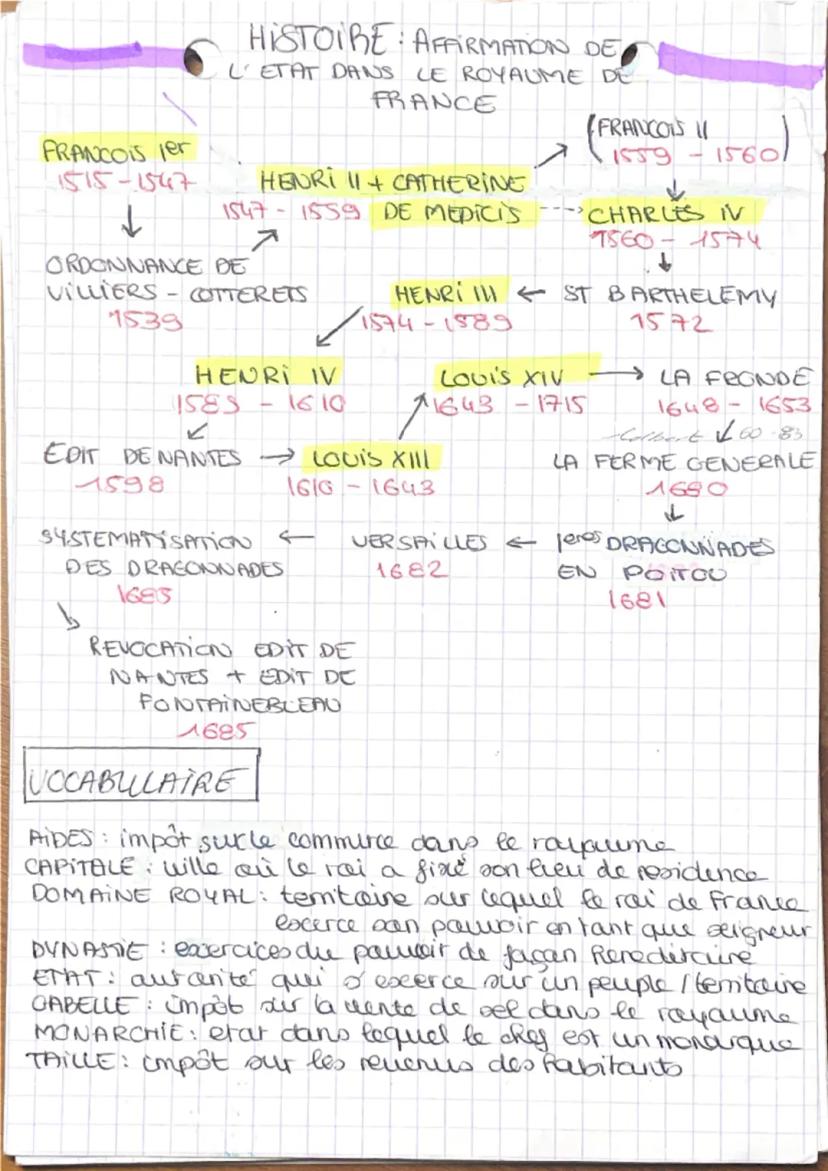 HISTOIRE : AFFIRMATION DE
L'ETAT DANS LE ROYAUME DE
FRANCE
(FRANCOIS II
1559 - 1560)
FRANCOIS 1er
1515-1547
HENRI II + CATHERINE
1547 - 1559 DE MEDICIS
CHARLES IV
1560 - 1574
ORDONNANCE DE
VILLIERS - COTTERETS
1539
HENRI III ← ST BARTHELEMY
1574 - 1589 1572
HENRI IV
1589 - 1610
LOUIS XIV → LA FRONDE
1643 - 1715 1648 - 1653
Colbert 60-83
EDIT DE NANTES → LOUIS XIII
1598 1610 - 1643
LA FERME GENERALE
1680
SYSTEMATISATION ← VERSAILLES ← 1eres DRAGONNADES
DES DRAGONNADES 1682 EN POITOU
1685 1681
REVOCATION EDIT DE
NANTES + EDIT DE
FONTAINEBLEAU
1685
VOCABULAIRE
AIDES : impôt sur le commerce dans le royaume
CAPITALE : ville où le roi a fixé son lieu de residence
DOMAINE ROYAL : territoire sur lequel le roi de France
excerce son pouvoir en tant que seigneur
DYNASTIE : exercices du pouvoir de façon hereditaire
ETAT : autorité qui s'excerce sur un peuple / territoire
GABELLE : impôt sur la vente de sel dans le royaume
MONARCHIE : etat dans lequel le chef est un monarque
TAILLE : impôt sur les revenus des habitants